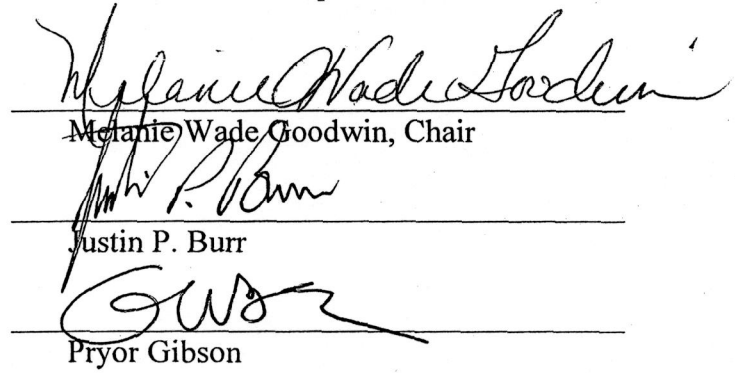 Melanie Wade Goodwin
Melanie Wade Goodwin, Chair
Justin P. Burr
Justin P. Burr
Pryor Gibson